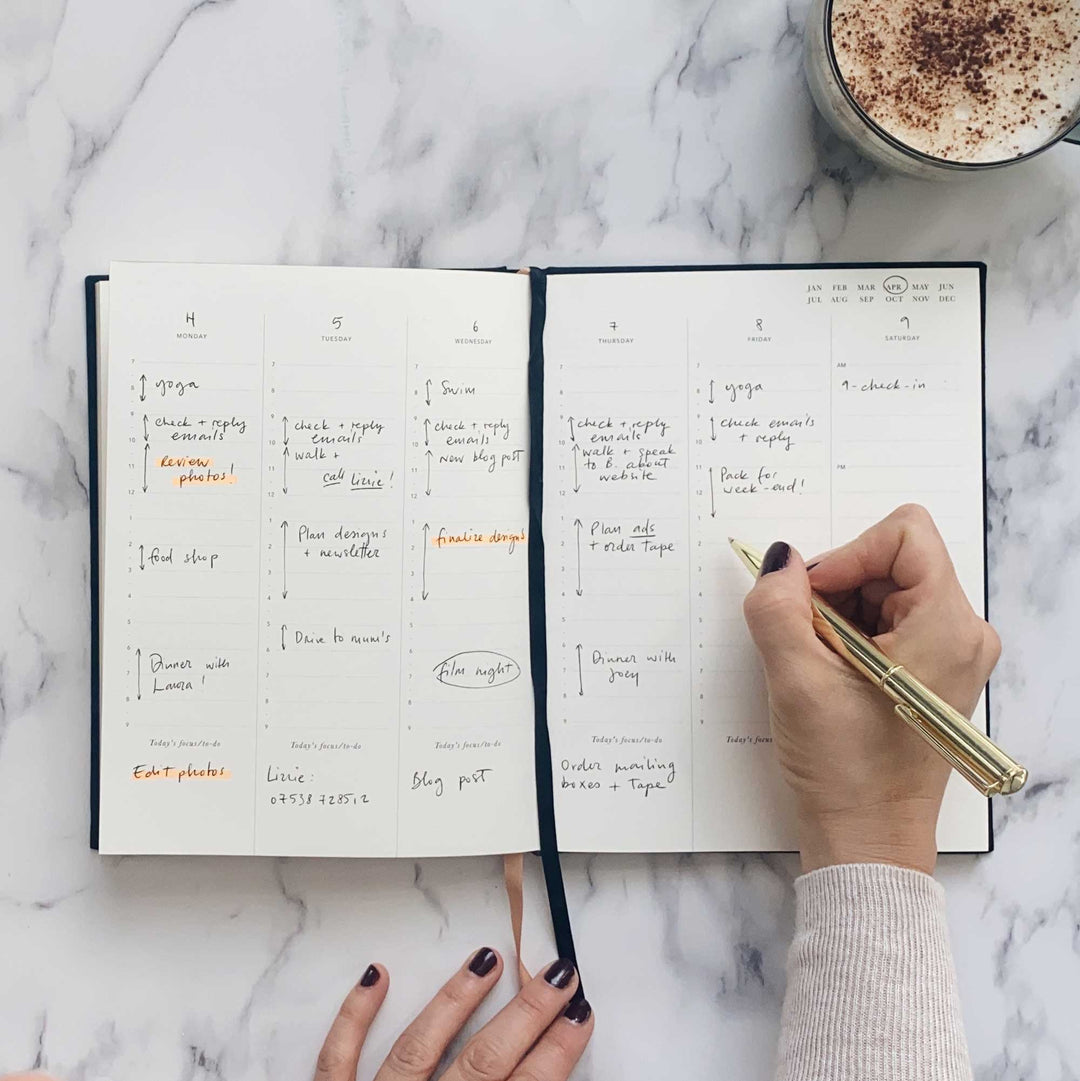 JAN FEB MAR APR MAY JUN
JUL AUG SEP OCT NOV DEC
4
MONDAY
7
8
yoga
9
check + reply
emails
10
11
Review
photos!
12
1
2
food shop
3
4
5
6
Dinner with
7
Laura!
8
9
Today's focus/to-do
Edit photos
5
TUESDAY
7
8
9
check + reply
emails
10
walk +
11
call Lizzie!
12
1
Plan designs
2
+ newsletter
3
4
5
Drive to mum's
6
7
8
9
Today's focus/to-do
Lizzie:
07538 728512
6
WEDNESDAY
7
8
Swim
9
check + reply
emails
10
New blog post
11
12
1
finalize designs
2
3
4
5
6
film night
7
8
9
Today's focus/to-do
Blog post
7
THURSDAY
7
8
9
check + reply
emails
10
walk + speak
to B. about
11
website
12
1
Plan ads
2
+ order tape
3
4
5
6
Dinner with
Joey
7
8
9
Today's focus/to-do
Order mailing
boxes + Tape
8
FRIDAY
7
8
yoga
9
check emails
+ reply
10
11
Pack for
week-end!
12
1
2
3
4
5
6
7
8
9
Today's
9
SATURDAY
AM
9-check-in
PM